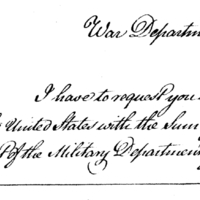 War Departm
I have to request you
United States with the Sum
of the Military Department